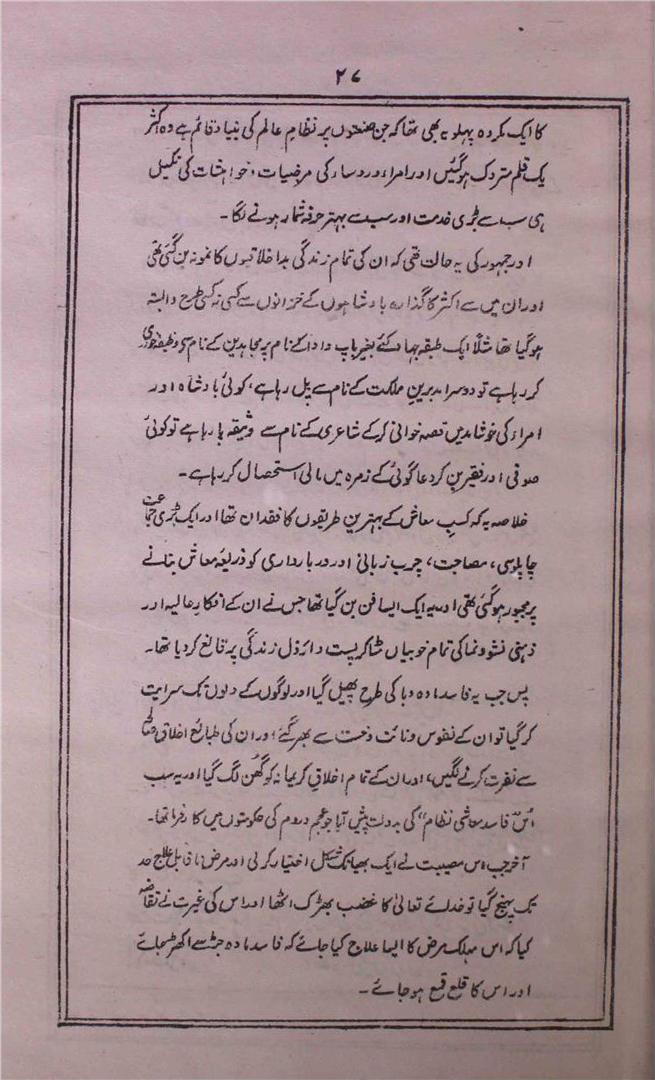 ۲۷
کا ایک مکروہ پہلو یہ بھی تھا کہ جن صنعتوں پر نظامِ عالم کی بنیاد قائم ہے وہ اکثر
یک قلم متروک ہوگئیں اور امراء و روساء کی مرضیات و خواہشات کی تکمیل
ہی سب سے بڑی خدمت اور سب سے بہتر حرفہ شمار ہونے لگا۔
اور جمہور کی یہ حالت تھی کہ ان کی تمام زندگی بداخلاقیوں کا نمونہ بن گئی تھی
اور ان میں سے اکثر کا گذارہ بادشاہوں کے خزانوں سے کسی نہ کسی طرح وابستہ
ہوگیا تھا مثلاً ایک طبقہ جہاد کئے بغیر باپ دادا کے نام پر مجاہدین کے نام سے وظیفہ خوری
کر رہا ہے تو دوسرا مدبرینِ مملکت کے نام سے پل رہا ہے، کوئی بادشاہ اور
امراء کی خوشامد میں قصہ خوانی کرکے شاعری کے نام سے وثیقہ پا رہا ہے تو کوئی
صوفی اور فقیر بن کر دعاگوئی کے زمرہ میں مالی استحصال کر رہا ہے۔
خلاصہ یہ کہ کسبِ معاش کے بہترین طریقوں کا فقدان تھا اور ایک بڑی جماعت
چاپلوسی، مصاحبت، چرب زبانی اور دربارداری کو ذریعۂ معاش بنانے
پر مجبور ہوگئی تھی اور یہ ایک ایسا فن بن گیا تھا جس نے ان کے افکارِ عالیہ اور
ذہنی نشوونما کی تمام خوبیاں مٹا کر پست و ارذل زندگی پر قانع کر دیا تھا۔
پس جب یہ فاسد مادہ وبا کی طرح پھیل گیا اور لوگوں کے دلوں تک سرایت
کر گیا تو ان کے نفوس دنائت و خست سے بھر گئے اور ان کی طبائع اخلاقِ صالحہ
سے نفرت کرنے لگیں، اور ان کے تمام اخلاقِ کریمانہ کو گھن لگ گیا اور یہ سب
اُس ”فاسد معاشی نظام“ کی بدولت پیش آیا جو عجم و روم کی حکومتوں میں کارفرما تھا۔
آخر جب اس مصیبت نے ایک بھیانک شکل اختیار کرلی اور مرض ناقابلِ علاج حد
تک پہنچ گیا تو خدائے تعالیٰ کا غضب بھڑک اٹھا اور اس کی غیرت نے تقاضہ
کیا کہ اس مہلک مرض کا ایسا علاج کیا جائے کہ فاسد مادہ جڑ سے اکھڑ جائے
اور اس کا قلع قمع ہوجائے۔